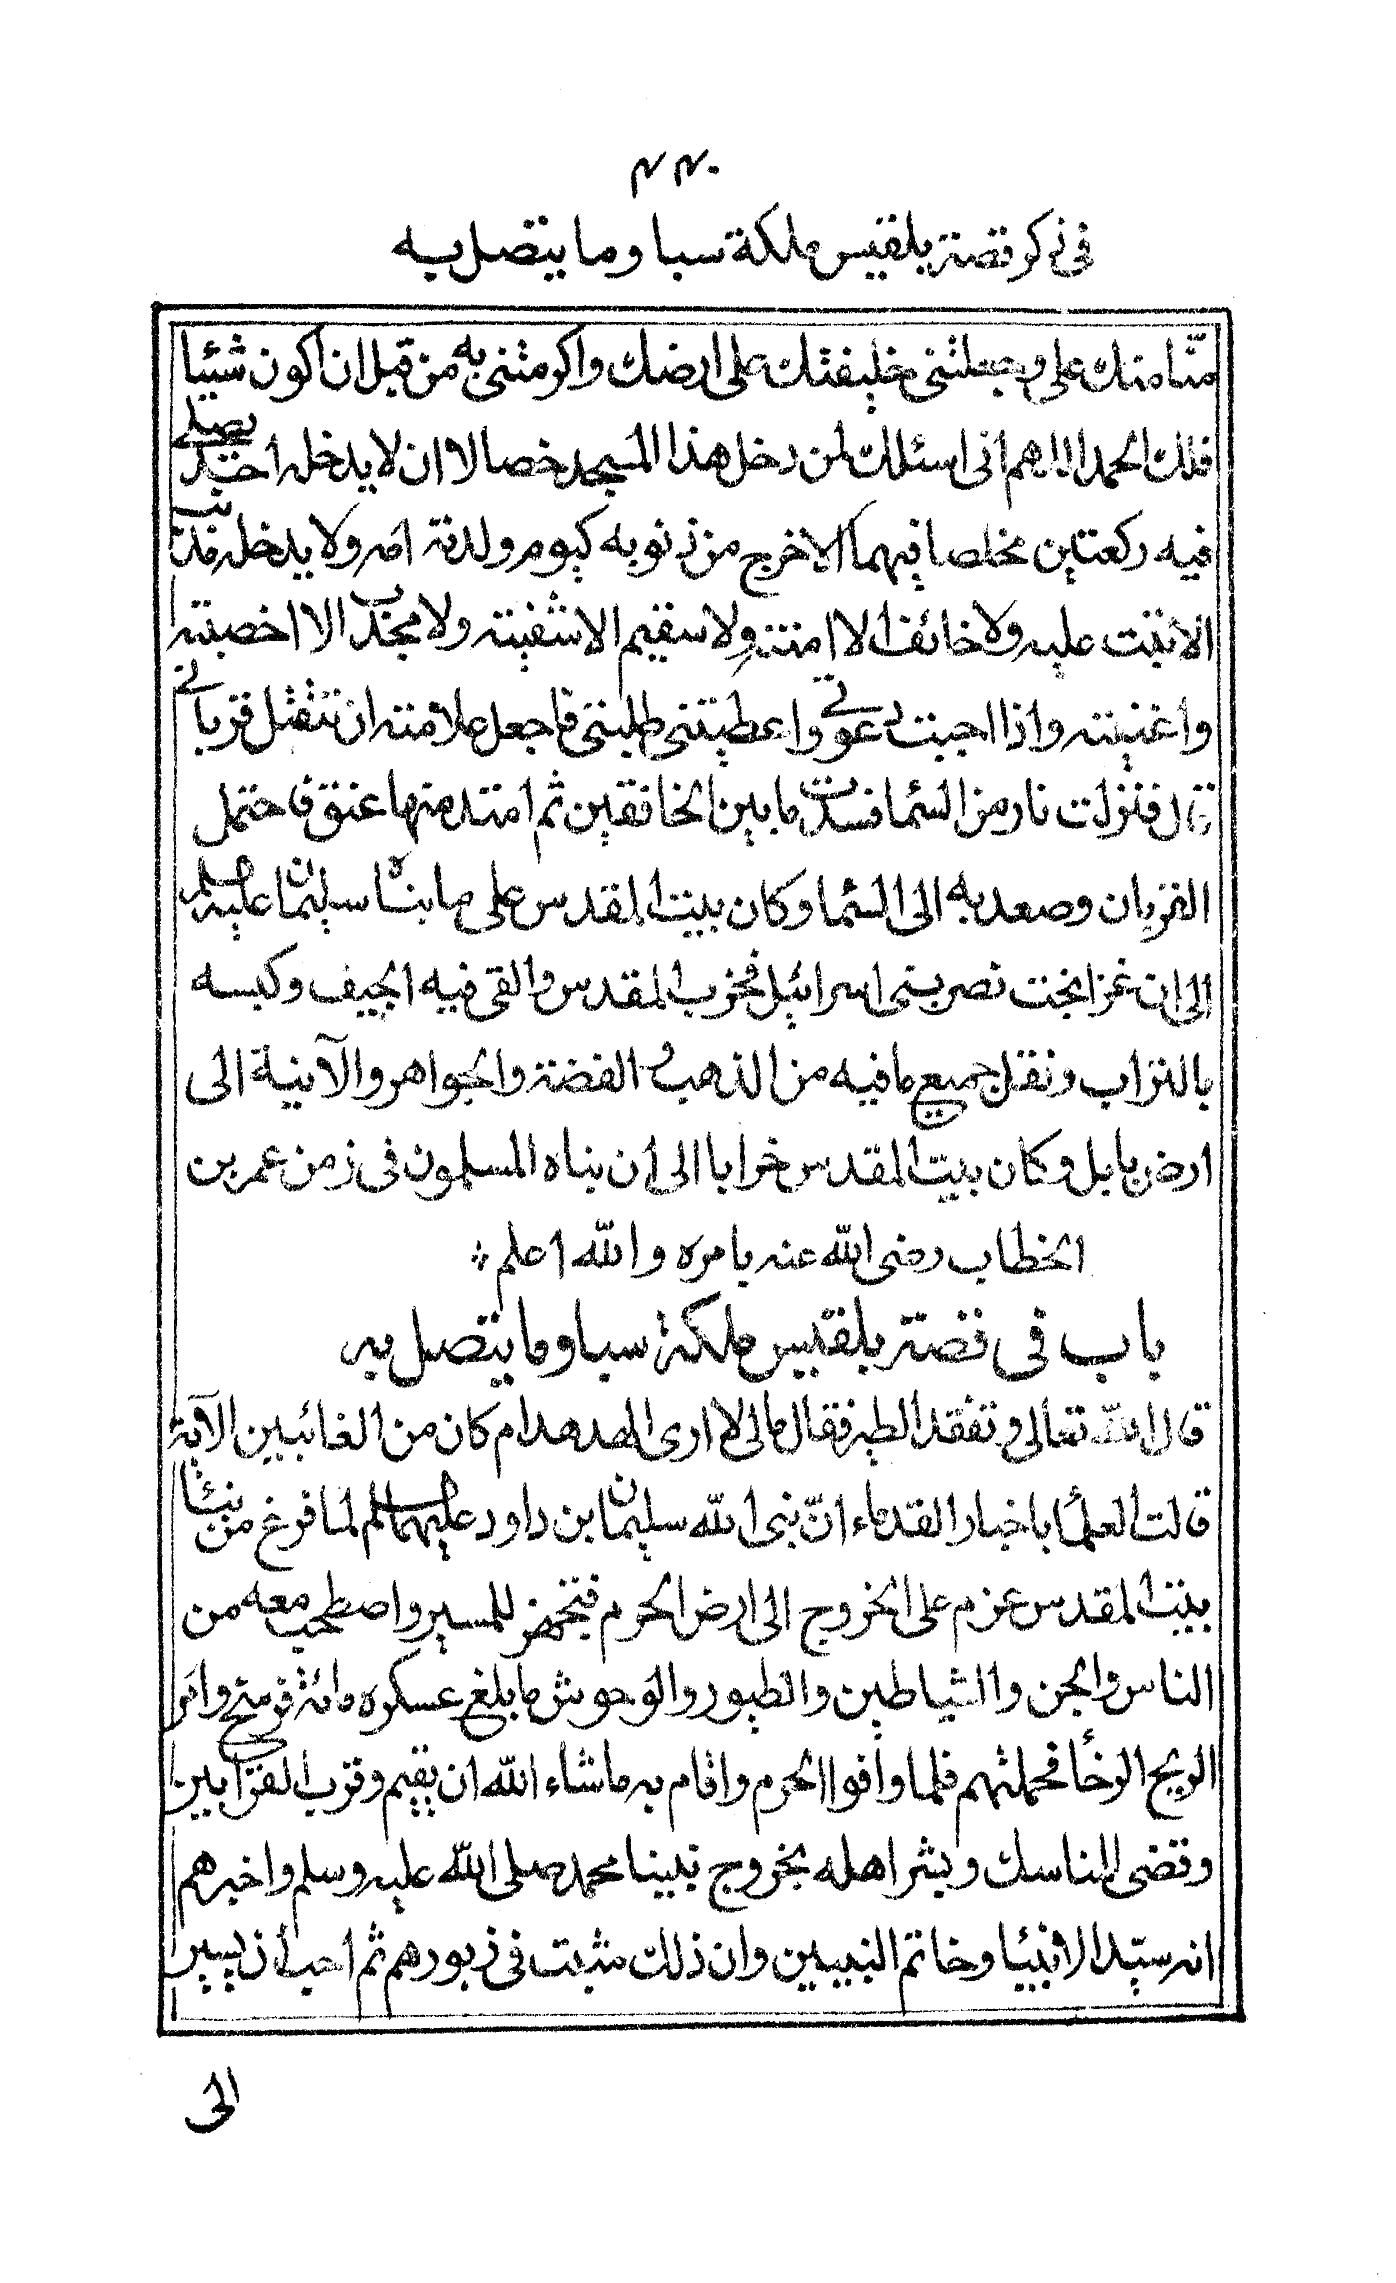 ٢٢٠
في ذكر قصة بلقيس ملكة سبا وما يتصل به
منّا منك علي وجعلتني خليفتك على ارضك واكرمتني به من قبل ان اكون شيئا
فلك الحمد اللهم اني اسئلك لمن دخل هذا المسجد خصالا ان لا يدخله احد يصلي
فيه ركعتين مخلصا فيهما الا خرج من ذنوبه كيوم ولدته امه ولا يدخله مذنب
الا تبت عليه ولا خائف الا امنته ولا سقيم الا شفيته ولا مجدب الا اخصبته
واغنيته واذا اجبت دعوتي واعطيتني طلبتي فاجعل علامته ان تتقبل قرباني
قال فنزلت نار من السما فسدت ما بين الخافقين ثم امتد منها عنق فاحتمل
القربان وصعد به الى السما وكان بيت المقدس على ما بناه سليمان عليه السلم
الى ان غزا بخت نصر بني اسرائيل فخرب المقدس والقى فيه الجيف وكبسه
بالتراب ونقل جميع ما فيه من الذهب والفضة والجواهر والآنية الى
ارض بابل وكان بيت المقدس خرابا الى ان بناه المسلمون في زمن عمر بن
الخطاب رضى الله عنه بامره والله اعلم
باب في قصة بلقيس ملكة سبا وما يتصل به
قال الله تعالى وتفقد الطير فقال مالي لا ارى الهدهد ام كان من الغائبين الآية
قالت العلما باخبار القدماء انّ نبي الله سليمان ابن داود عليهما السلم لما فرغ من بنا
بيت المقدس عزم على الخروج الى ارض الحرم فتجهز للمسير واصطحب معه من
الناس والجن والشياطين والطيور والوحوش ما بلغ عسكره مائة فرسخ وامر
الريح الرخا فحملتهم فلما وافوا الحرم واقام به ما شاء الله ان يقيم وقرب القرابين
وقضى المناسك وبشر اهله بخروج نبينا محمد صلى الله عليه وسلم واخبرهم
انه سيّد الانبيا وخاتم النبيين وان ذلك مثبت في زبورهم ثم احب ان يسير
الى